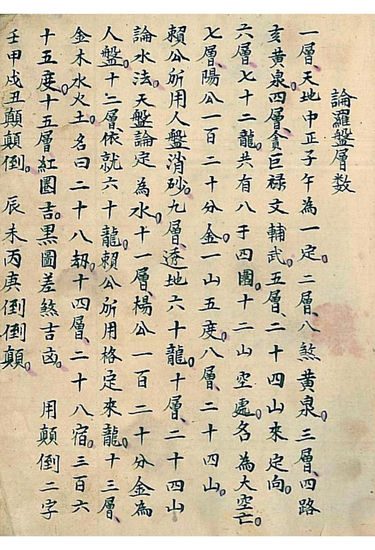 論羅盤層数
一層、天地中正子午為一定。二層、八煞黄泉。三層、四路
亥黄泉。四層、貪巨禄文輔武。五層、二十四山來定向。
六層七十二龍。共有八干四国。十二山空處。名為大空亡。
七層、陽公一百二十分金。一山五度。八層、二十四山。
賴公所用人盤消砂。九層透地六十龍。十層、二十四山
論水法。天盤論定為水。十一層楊公一百二十分金為
人盤。十二層、依就六十龍。賴公所用格定來龍。十三層、
金木水火土。名曰二十八刼。十四層、二十八宿。三百六
十五度。十五層紅圈吉。黒圖差煞吉凶。 用顛倒二字
壬甲戌丑顛顛倒。辰未丙庚倒倒顛。